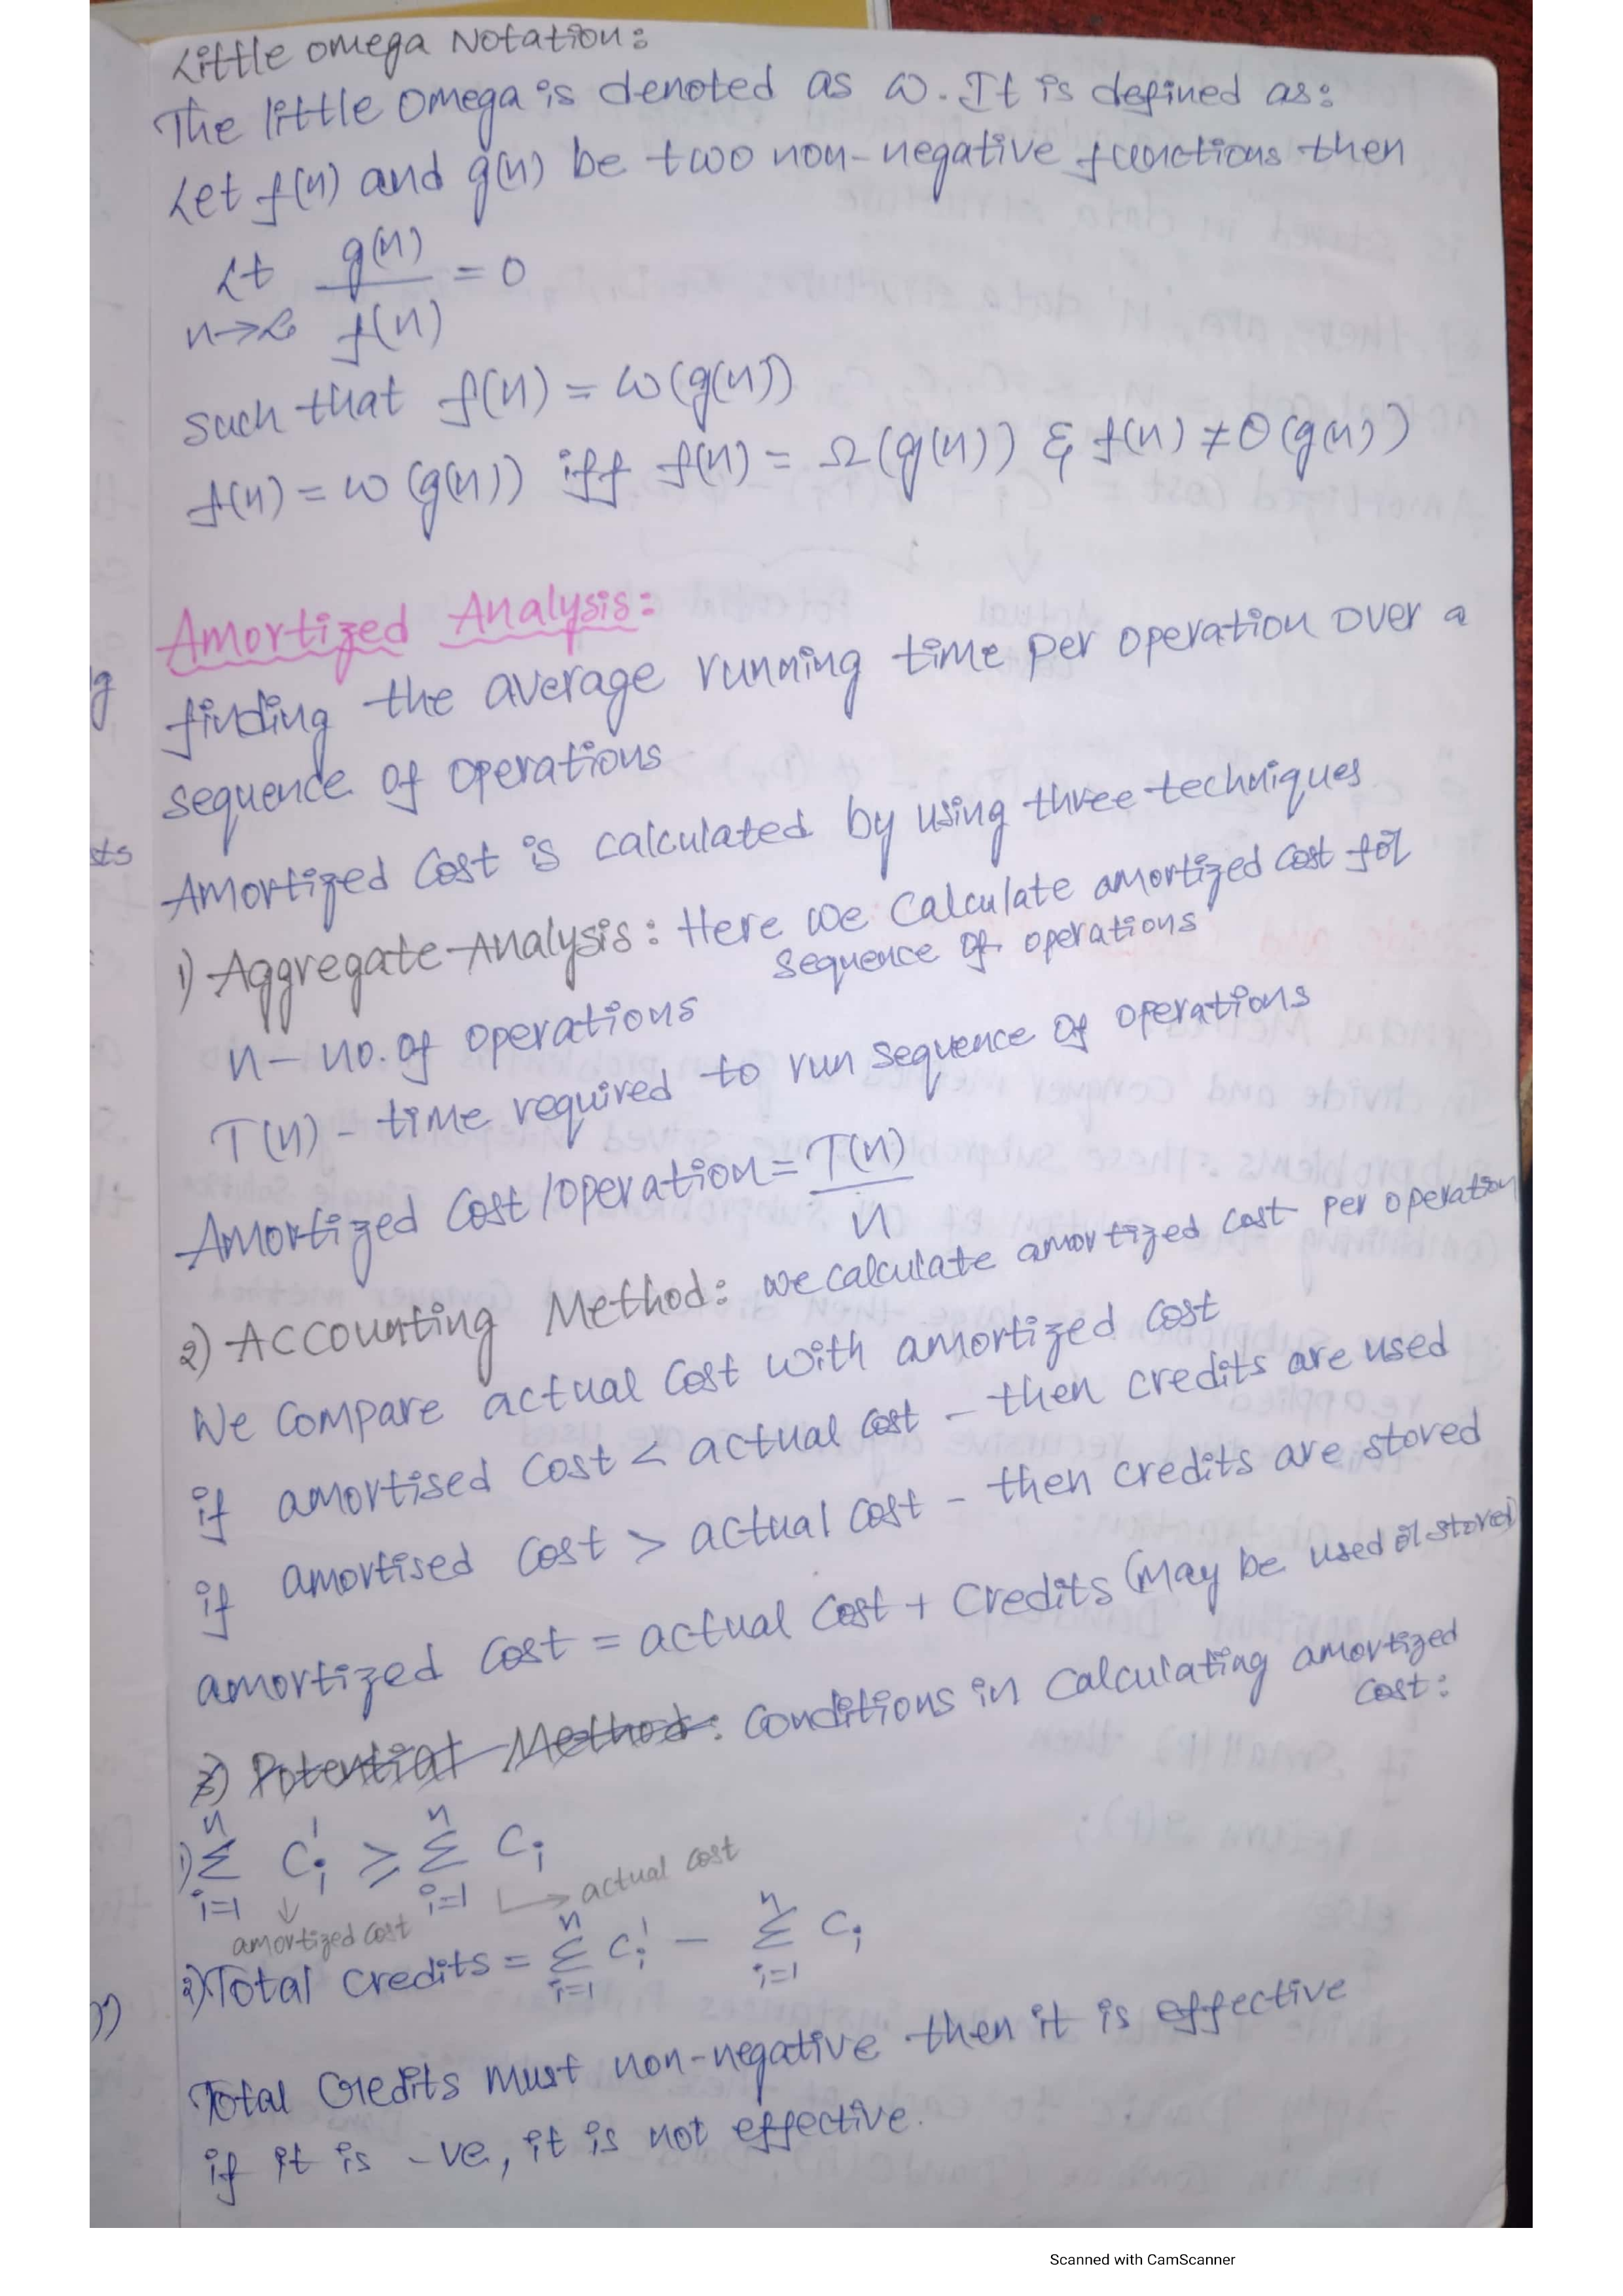 Little omega Notation:
The little omega is denoted as ω. It is defined as:
Let f(n) and g(n) be two non-negative functions then
Lt g(n)/f(n) = 0
n→∞
such that f(n) = ω(g(n))
f(n) = ω(g(n)) iff f(n) = Ω(g(n)) & f(n) ≠ Θ(g(n))
Amortized Analysis:
finding the average running time per operation over a
sequence of operations
Amortized Cost is calculated by using three techniques
1) Aggregate Analysis: Here we Calculate amortized cost for
sequence of operations
n - no. of operations
T(n) - time required to run sequence of operations
Amortized Cost/operation = T(n)/n
2) Accounting Method: we calculate amortized cost per operation
We Compare actual Cost with amortized Cost
if amortised Cost < actual Cost - then credits are used
if amortised Cost > actual Cost - then credits are stored
amortized Cost = actual Cost + Credits (may be used or stored)
3) Potential Method: Conditions in Calculating amortized
Cost:
1) n∑i=1 Ci' ≥ n∑i=1 Ci
actual cost
amortized cost
2) Total Credits = n∑i=1 Ci' - n∑i=1 Ci
Total Credits must non-negative then it is effective
if it is -ve, it is not effective.
g
sts
))
Scanned with CamScanner